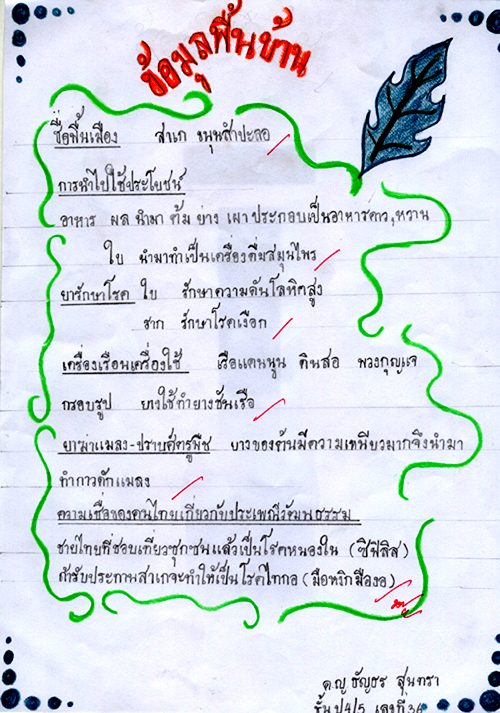 ข้อมูลพื้นบ้าน
ชื่อพื้นเมือง สาเก ขนุนสำปะลอ
การนำไปใช้ประโยชน์
อาหาร ผล นำมา ต้ม ย่าง เผา ประกอบเป็นอาหารคาว,หวาน
ใบ นำมาทำเป็นเครื่องดื่มสมุนไพร
ยารักษาโรค ใบ รักษาความดันโลหิตสูง
ราก รักษาโรคเงือก
เครื่องเรือนเครื่องใช้ เรือแคนนูน ดินสอ พวงกุญแจ
กรอบรูป ยางใช้ทำยางชันเรือ
ยาฆ่าแมลง-ปราบศัตรูพืช ยางของต้นมีความเหนียวมากจึงนำมา
ทำกาวดักแมลง
ความเชื่อของคนไทยเกี่ยวกับประเพณีวัฒนธรรม
ชายไทยที่ชอบเที่ยวซุกซนแล้วเป็นโรคหนองใน (ซิฟิลิส)
ถ้ารับประทานสาเกจะทำให้เป็นโรคไทกอ (มือหงิกมืองอ)
ด.ญ ธัญธร สุนทรา
ชั้น ป4/5 เลขที่ 36